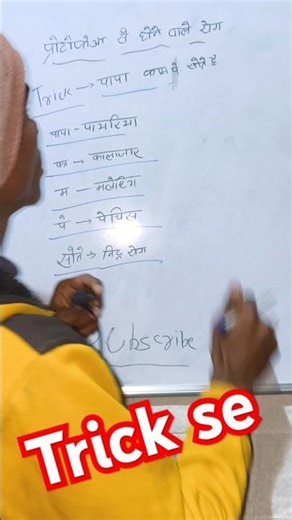 प्रोटोजोआ से होने वाले रोग
Trick → पापा काम पे सोते है
पापा - पायरिया
का → कालाजार
म - मलेरिया
पे → पेचिस
सोते → निद्रा रोग
Subscribe
Trick se